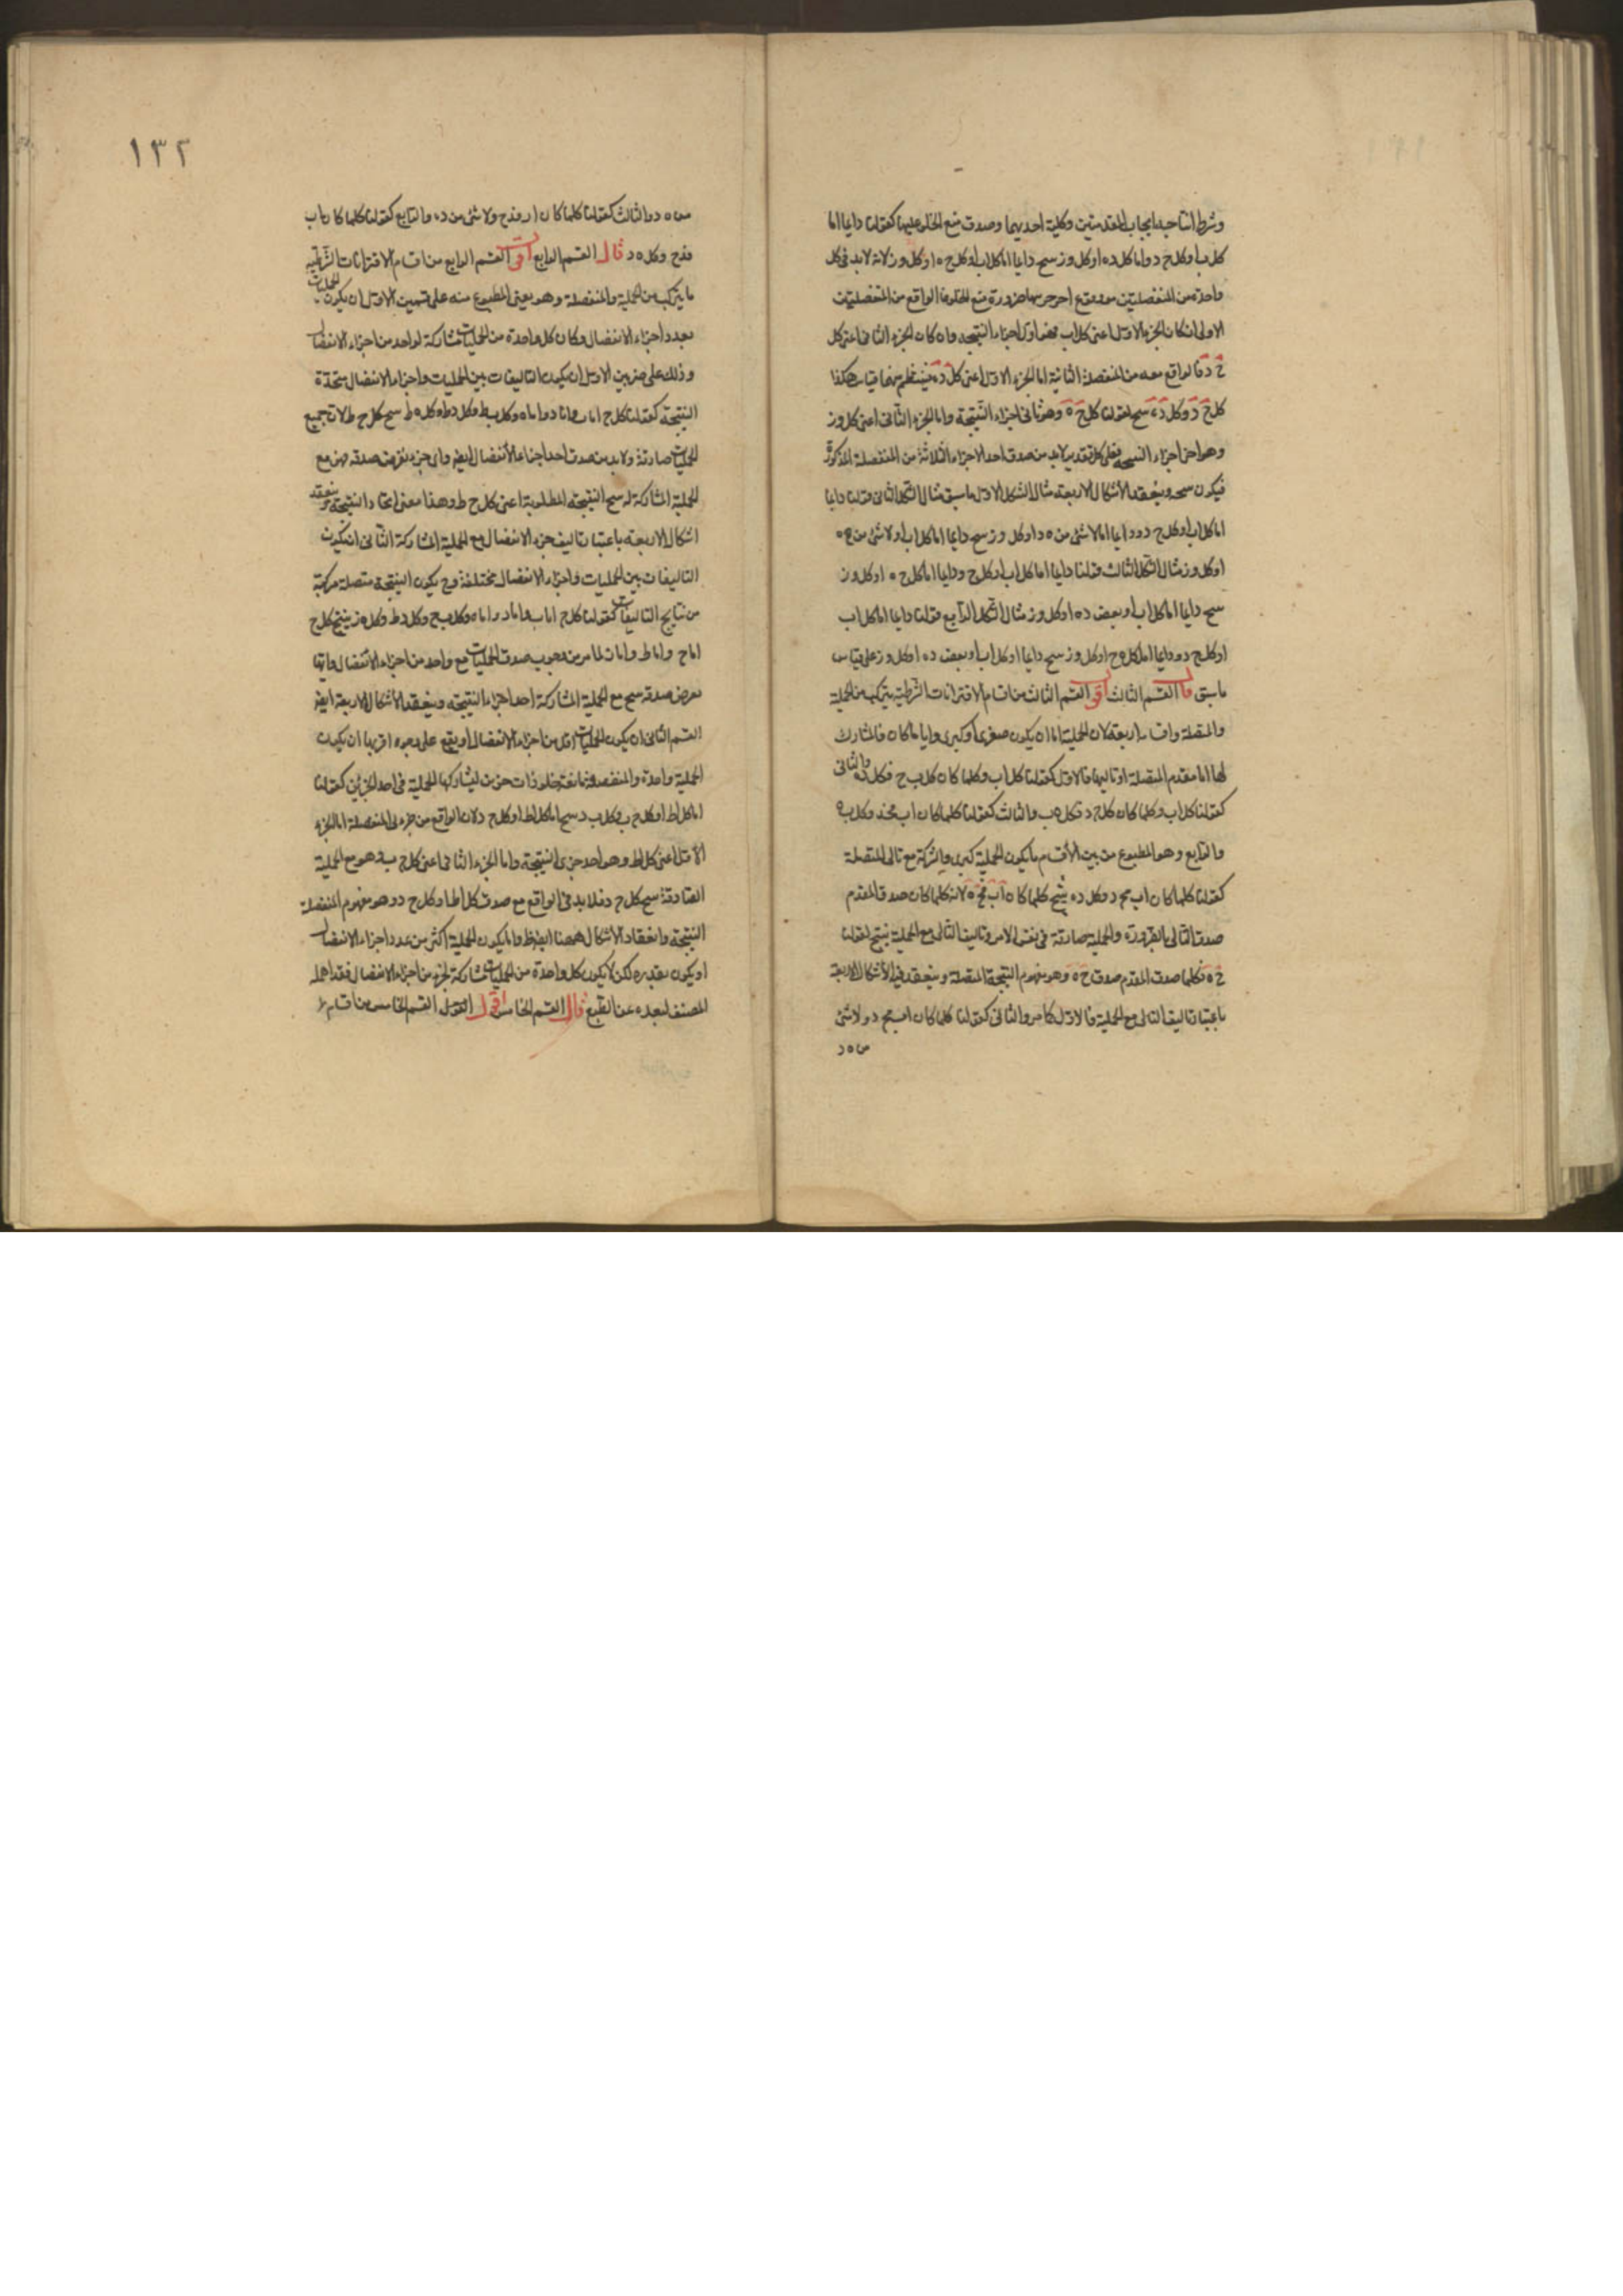 وشرط انتاجه ايجاب المقدمتين وكلية احديهما وصدق منع الخلو عليهما كقولنا دايما اما
كل اب او كل ج د واما كل د ه او كل و ز ينتج دايما اما كل اب او كل ج ه او كل و ز لانه لابد فى كل
واحدة من المنفصلتين من وقوع احد جزئيها ضرورة منع الخلو فالواقع من المنفصلة
الاولى ان كان الجزء الاول اعنى كل اب فهو اول اجزاء النتيجه وان كان الجزء الثانى اعنى كل
ج د فالواقع معه من المنفصلة الثانية اما الجزء الاول اعنى كل د ه فينتظم منهما قياس هكذا
كل ج د وكل د ه ينتج لقولنا كل ج ه وهو ثانى اجزاء النتيجة واما الجزء الثانى اعنى كل و ز
وهو اخر اجزاء النتيجه فعلى كل تقدير لابد من صدق احد الاجزاء الثلاثة من المنفصلة المذكورة
فيكون نتيجه وينعقد الاشكال الاربعة مثال الشكل الاول ما سبق مثال الشكل الثانى قولنا دايما
اما كل اب او كل ج د ودايما اما لاشئ من ه د او كل و ز ينتج دايما اما كل اب او لاشئ من ج ه
او كل و ز مثال الشكل الثالث قولنا دايما اما كل اب او كل ج د ودايما اما كل ج ه او كل و ز
ينتج دايما اما كل اب او بعض د ه او كل و ز مثال الشكل الرابع قولنا دايما اما كل اب
او كل ج د ودايما اما كل ه ج او كل و ز ينتج دايما او كل اب او بعض د ه او كل و ز على قياس
ما سبق قال القسم الثالث اقول القسم الثالث من اقسام الاقترانات الشرطية يتركب من الحملية
والمتصلة واقسامه اربعة لان الحملية اما ان يكون صغرى او كبرى وايا ما كان فالمشارك
لها اما مقدم المتصلة او تاليها فالاول كقولنا كل اب وكلما كان كل ب ج فكل د ه والثانى
كقولنا كل اب وكلما كان كل ج د فكل ه ب والثالث كقولنا كلما كان اب فج د وكل ب ه
والرابع وهو المطبوع من بين الاقسام ما يكون الحملية كبرى والشركة مع تالى المتصلة
كقولنا كلما كان اب فج د وكل د ه ينتج كلما كان اب فج ه لانه كلما كان صدق المقدم
صدق التالى بالضرورة والحملية صادقة فى نفس الامر وتاليف التالى مع الحملية ينتج لقولنا
ج ه فكلما صدق المقدم صدق ج ه وهو مفهوم النتيجة المتصلة وينعقد فيه الاشكال الاربعة
باعتبار تاليف التالى مع الحملية فالاول كما مر والثانى كقولنا كلما كان اب فج د ولاشئ
من ه د
١٣٢
من ه د والثالث كقولنا كلما كان اب فد ج ولاشئ من د ه والرابع كقولنا كلما كان اب
فد ج وكل ه د قال القسم الرابع اقول القسم الرابع من اقسام الاقترانات الشرطيه
ما يتركب من الحملية والمنفصلة وهو يعنى المطبوع منه على قسمين الاول ان يكون الحمليات
بعدد اجزاء الانفصال وكان كل واحدة من الحمليات مشاركة لواحد من اجزاء الانفصال
وذلك على ضربين الاول ان يكون التاليفات بين الحمليات واجزاء الانفصال متحدة
النتيجة كقولنا كل ج اما ب واما د واما ه وكل ب ط وكل د ط وكل ه ط ينتج كل ج ط لان جميع
الحمليات صادقة ولابد من صدق احد اجزاء الانفصال ايضا واى جزء يفرض صدقه فهو مع
الحملية المشاركة له ينتج النتيجة المطلوبة اعنى كل ج ط وهذا معنى اتحاد النتيجة وينعقد
اشكال الاربعة باعتبار تاليف جزء الانفصال مع الحملية المشاركة الثانى ان يكون
التاليفات بين الحمليات واجزاء الانفصال مختلفة وح يكون النتيجة متصلة مركبة
من نتايج التاليفات كقولنا كل ج اما ب واما د واما ه وكل ب ج وكل د ط وكل ه ز ينتج كل ج
اما ج واما ط واما ز لما مر من وجوب صدق الحمليات مع واحد من اجزاء الانفصال وايما
يفرض صدقه ينتج مع الحملية المشاركة احد اجزاء النتيجه وينعقد الاشكال الاربعة ايضا
القسم الثانى ان يكون الحمليات اقل من اجزاء الانفصال ويقع على وجوه اقربها ان يكون
الحملية واحدة والمنفصلة مانعة خلو ذات جزئين ليشاركها الحملية فى احد الجزئين كقولنا
اما كل اط او كل ج ب وكل ب د ينتج اما كل اط او كل ج د لان الواقع من جزئى المنفصلة اما الجزء
الاول اعنى كل اط وهو احد جزئى النتيجة واما الجزء الثانى اعنى كل ج ب وهو مع الحملية
الصادقة ينتج كل ج د فلابد فى الواقع مع صدق كل اط او كل ج د وهو مفهوم المنفصلة
النتيجة وانعقاد الاشكال ههنا ايضا ظ واما يكون الحملية اكثر من عدد اجزاء الانفصال
او يكون بعدده لكن لا يكون كل واحدة من الحمليات مشاركة لجزء من اجزاء الانفصال فقد اهمله
المصنف لبعده عن الطبع قال القسم الخامس اقول القسم الخامس من اقسام